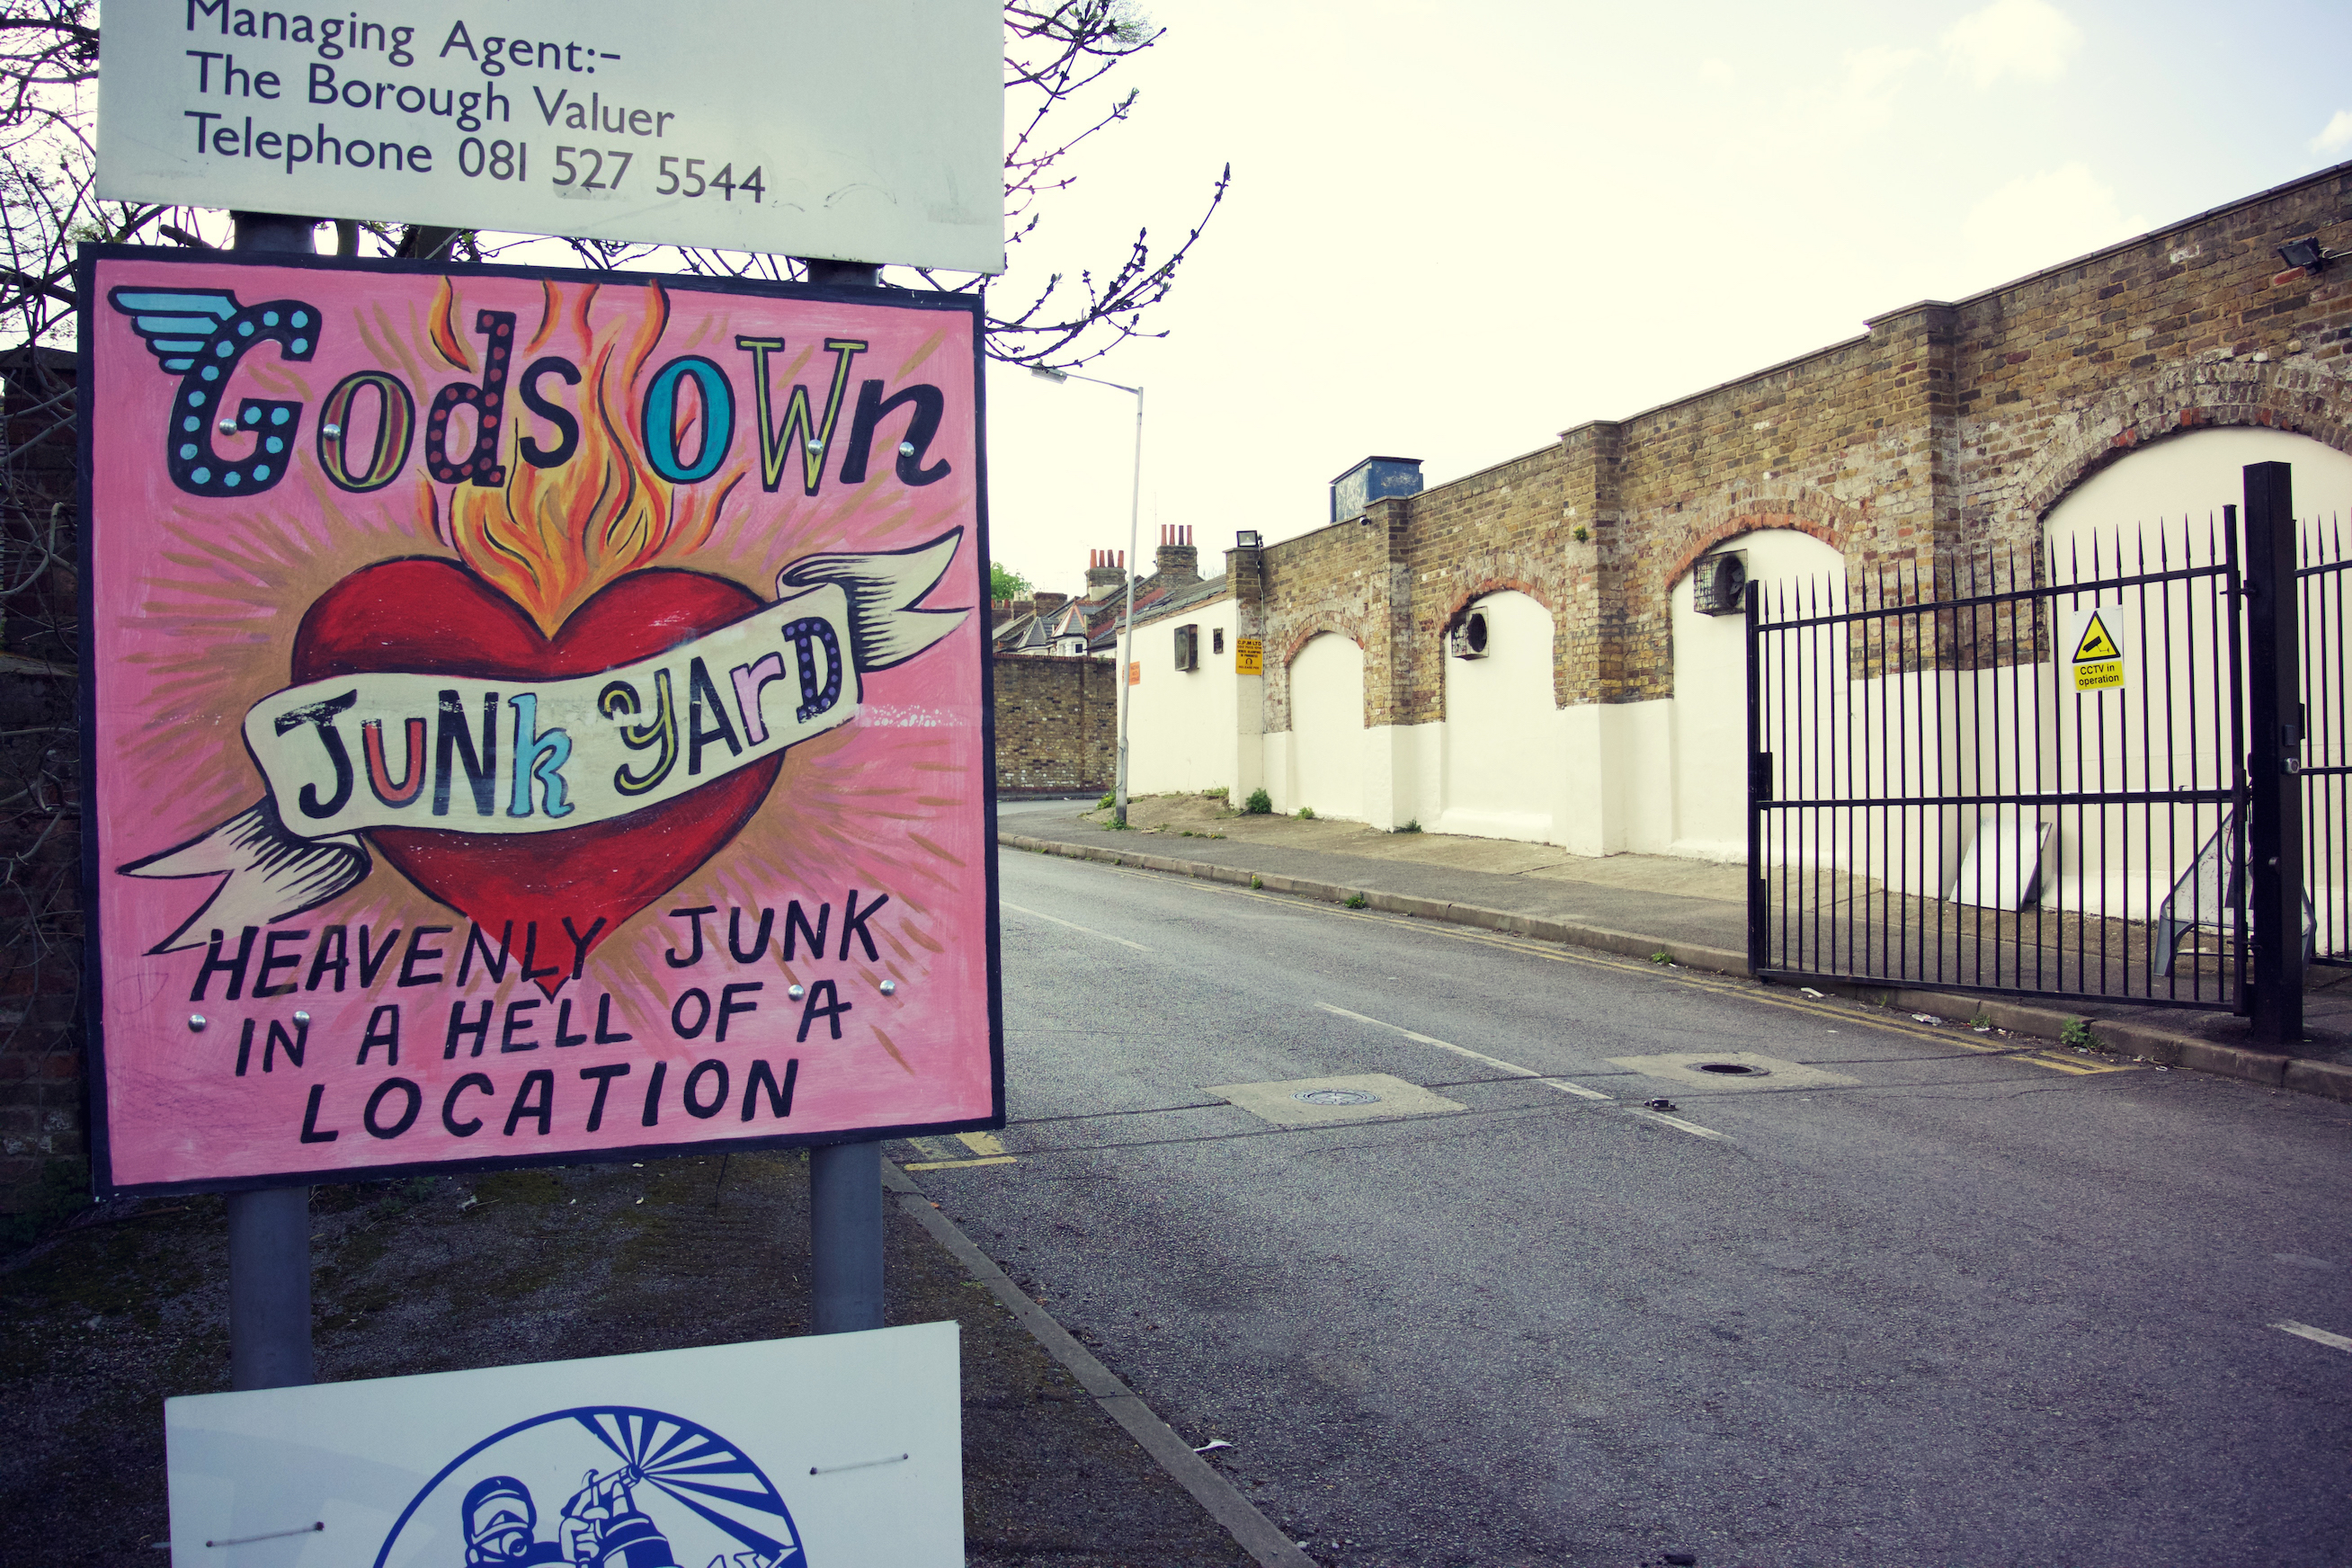 Managing Agent:-
The Borough Valuer
Telephone 081 527 5544
Gods own
JUNk yArD
HEAVENLY JUNK
IN A HELL OF A
LOCATION
CCTV in
operation